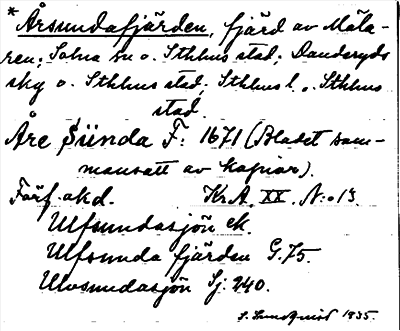 * Årsundafjärden, fjärd av Mäla-
ren; Solna sn o. Sthlms stad; Danderyds
skg o. Sthlms stad; Sthlms l. o. Sthlms
stad.
Åre Siünda F: 1671 (Bladet sam-
mansatt av kopior).
Förf. okd. Kr.A. XX. N:o 13.
Ulfsundasjön ek.
Ulfsunda fjärden G. 75.
Ulvsundasjön Sj: 240.
1935.